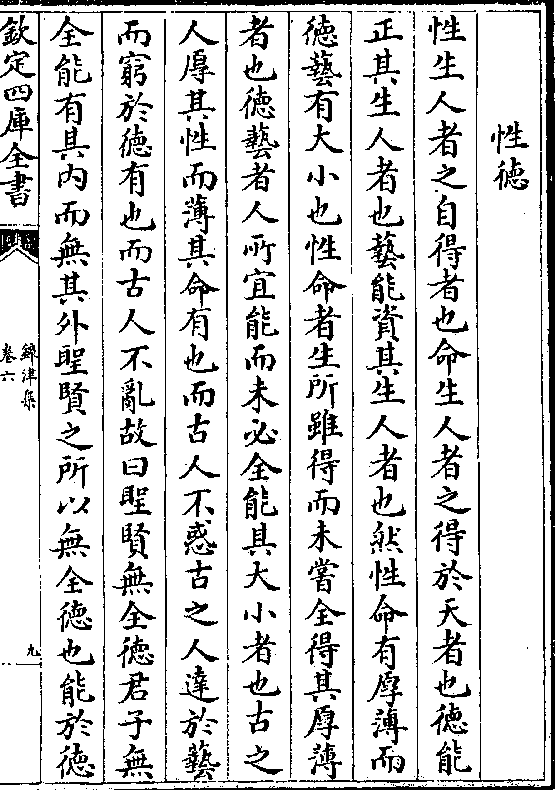 性徳
性生人者之自得者也命生人者之得於天者也徳能
正其生人者也藝能資其生人者也然性命有厚薄而
徳藝有大小也性命者生所雖得而未嘗全得其厚薄
者也徳藝者人所宜能而未必全能其大小者也古之
人厚其性而薄其命有也而古人不惑古之人達於藝
而窮於徳有也而古人不亂故曰聖賢無全徳君子無
全能有其内而無其外聖賢之所以無全徳也能於徳
欽定四庫全書
鐔津集
卷六
九